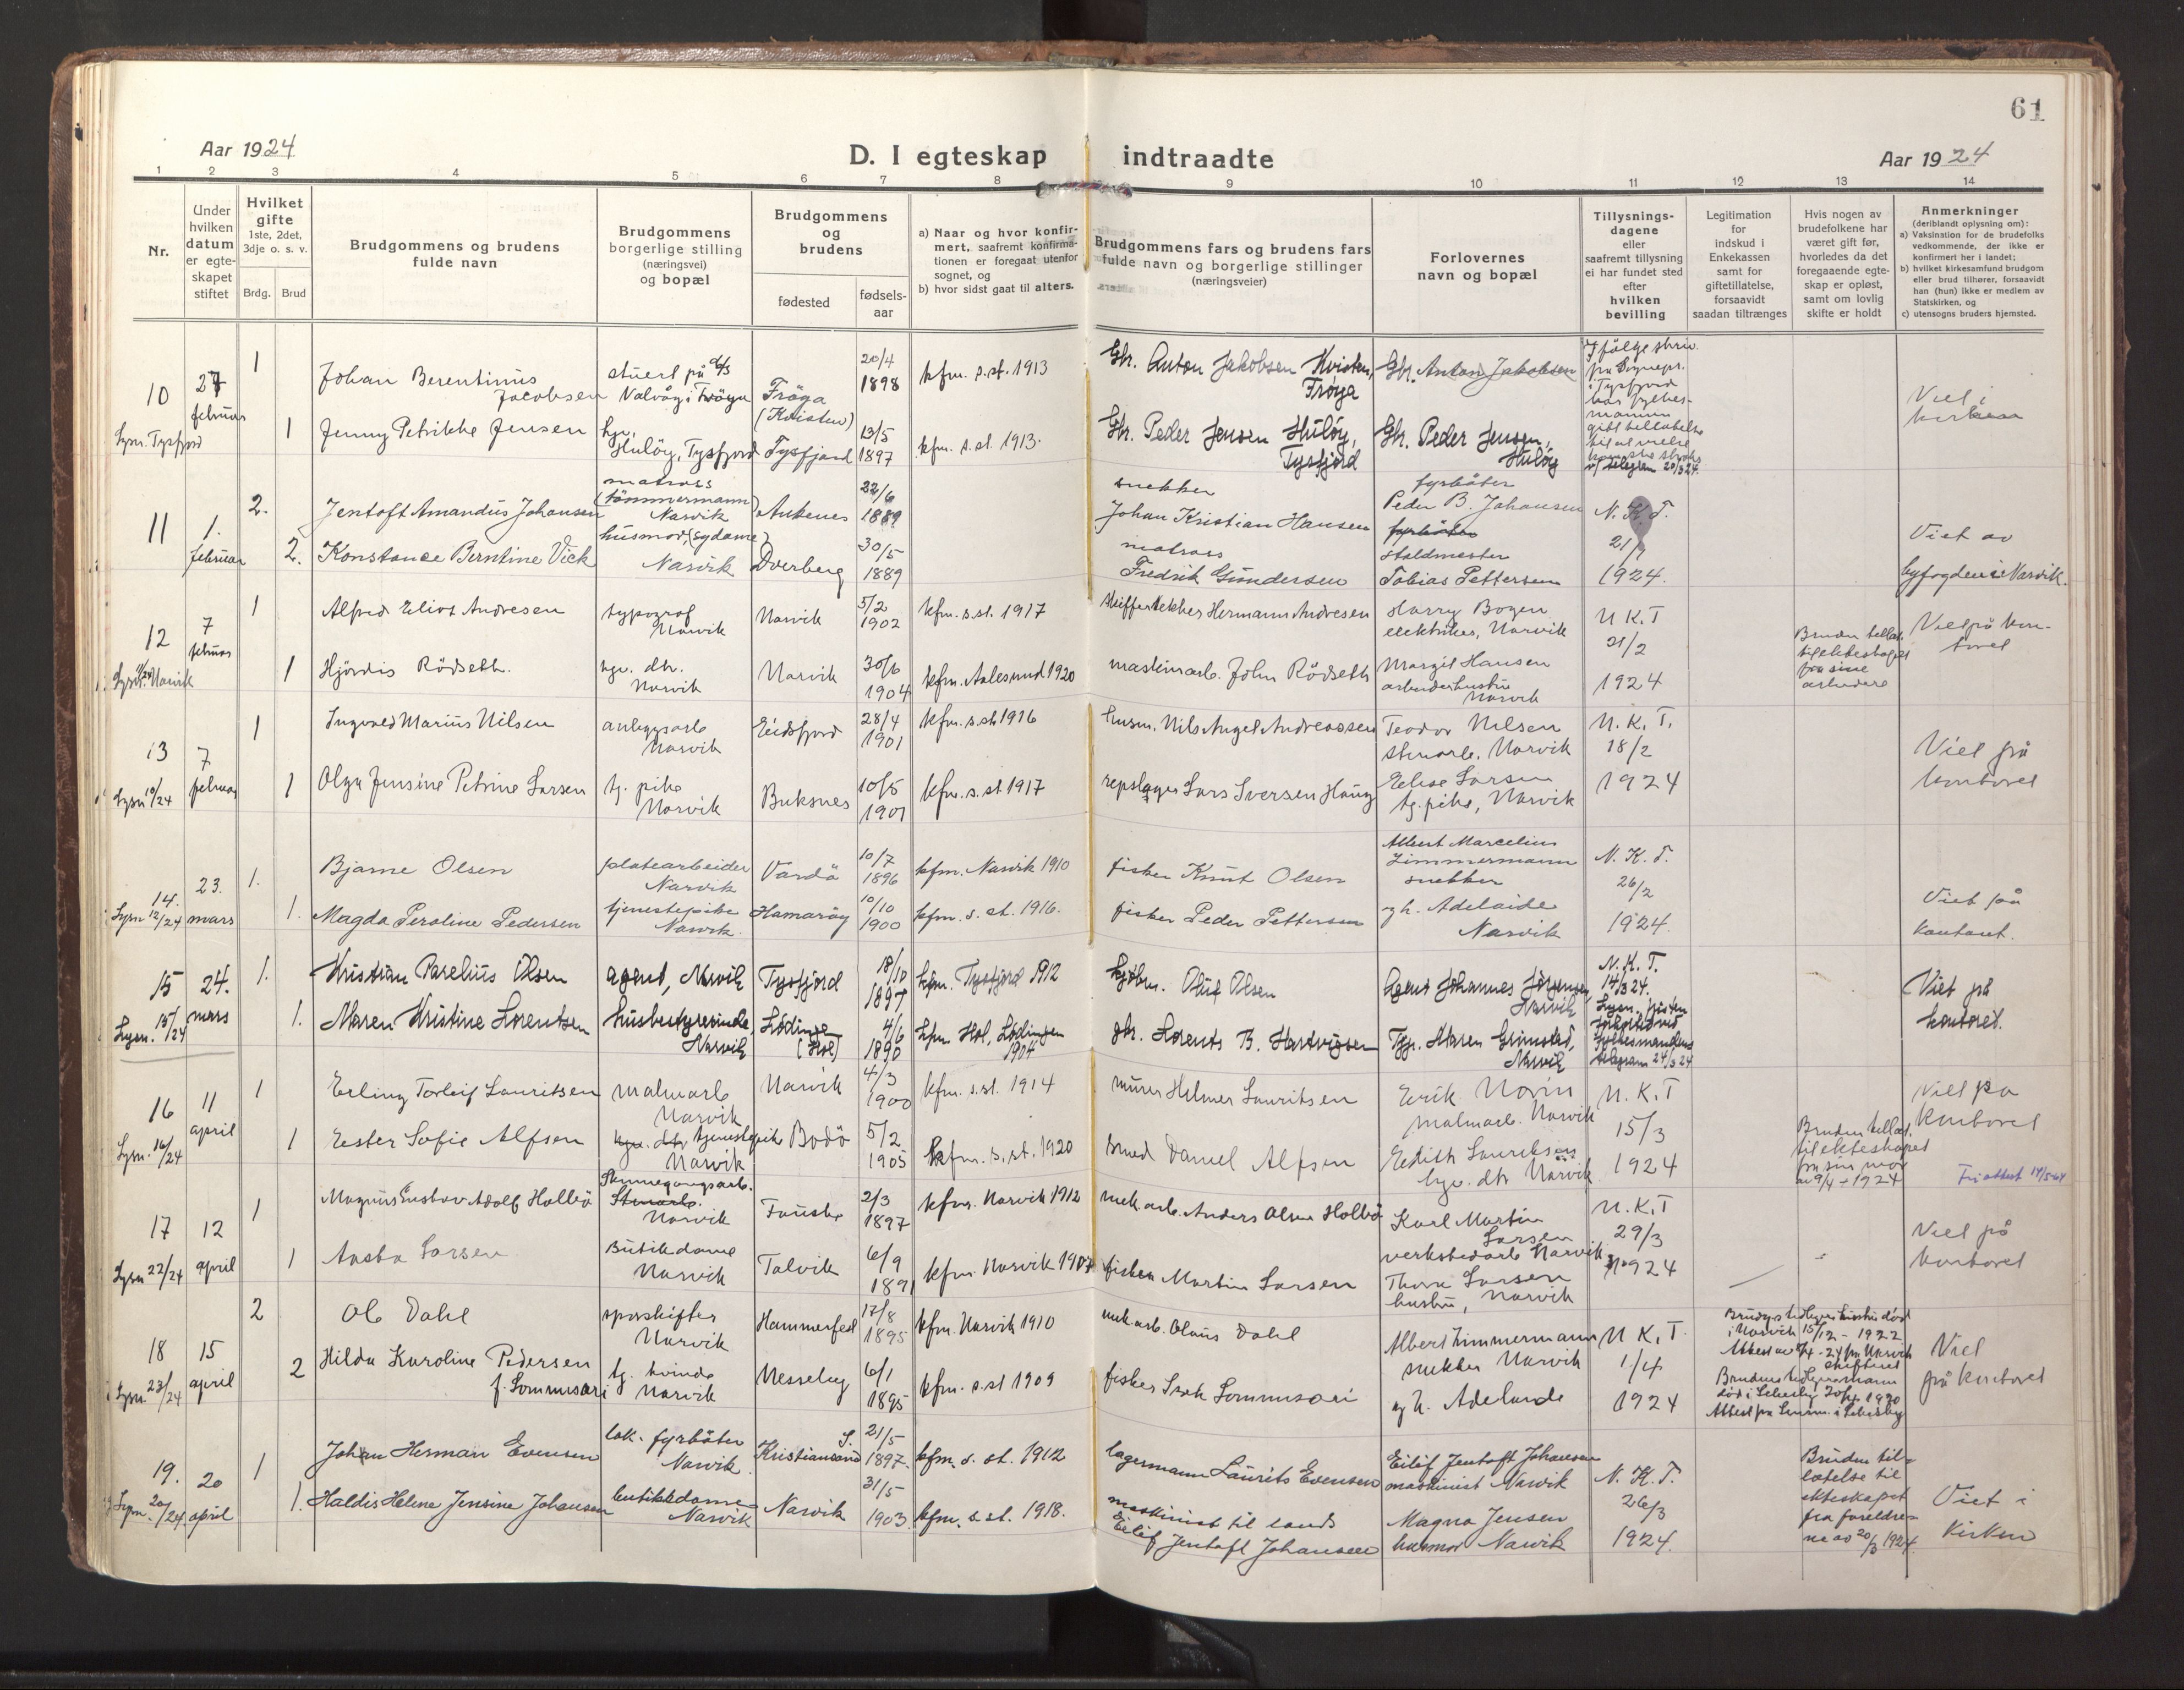 61
Aar 1924
D. I egteskap indtraadte
Aar 1924
1 2 3 4 5 6 7 8 9 10 11 12 13 14
Nr.
Under
hvilken
datum
er egte-
skapet
stiftet
Hvilket
gifte
1ste, 2det,
3dje o. s. v.
Brdg.
Brud
Brudgommens og brudens
fulde navn
Brudgommens
borgerlige stilling
(næringsvei)
og bopæl
Brudgommens
og
brudens
fødested
fødsels-
aar
a) Naar og hvor konfir-
mert, saafremt konfirma-
tionen er foregaat utenfor
sognet, og
b) hvor sidst gaat til alters.
Brudgommens fars og brudens fars
fulde navn og borgerlige stillinger
(næringsveier)
Forlovernes
navn og bopæl
Tillysnings-
dagene
eller
saafremt tillysning
ei har fundet sted
efter
hvilken
bevilling
Legitimation
for
indskud i
Enkekassen
samt for
giftetillatelse,
forsaavidt
saadan tiltrænges
Hvis nogen av
brudefolkene har
været gift før,
hvorledes da det
foregaaende egte-
skap er opløst,
samt om lovlig
skifte er holdt
Anmerkninger
(deriblandt oplysning om):
a) Vaksination for de brudefolks
vedkommende, der ikke er
konfirmert her i landet;
b) hvilket kirkesamfund brudgom
eller brud tilhører, forsaavidt
han (hun) ikke er medlem av
Statskirken, og
c) utensogns bruders hjemsted.
10
27
februar
Lysn. Tysfjord
1
Johan Berentinus
Jacobsen
stuert på d/s
Valvåg i Frøya
Fröya
(Kvisten)
20/4
1898
kfm. s. st. 1913
Gbr. Anton Jakobsen Kvisten,
Frøya
Gbr. Anton Jakobsen
Viel i
kirken
1
Jenny Petrikke Jensen
Hulöy, Tysfjord
Tysfjord
13/5
1897
kfm. s. st. 1913.
Gbr. Peder Jensen Hulöy,
Tysfjord
Gbr. Peder Jensen,
Hulöy
telegram 20/3 24.
11
1.
februar
2.
Jentoft Amandus Johansen
matros
(tömmermann)
Narvik
Ankenes
22/6
1889
snekker
Johan Kristian Hansen
fyrböter
Peder B. Johansen
N. K. T.
21/1
1924.
Viet av
byfogden i Narvik.
2.
Konstance Berntine Vick
husmor, (sydame)
Narvik
Dverberg
30/5
1889
matros
Fredrik Gundersen
fyrböter
staldmester
Tobias Pettersen
12
7
februar
1
Alfred Eliot Andresen
typograf
Narvik
Narvik
5/2
1902
kfm. s. st. 1917
skiffertekker Hermann Andresen
Harry Bogen
elektriker, Narvik
N K. T
21/2
1924
Viel på kon-
toret
1
Hjördis Rödseth.
hjv. dtr.
Narvik
Narvik
30/6
1904
kfm. Aalesund 1920
maskinarb. John Rödseth
Margit Hansen
arbeiderhustru
Narvik
13
7
februar
Lysn 10/24
1
Ingvald Marius Nilsen
anleggsarb
Narvik
Eidsfjord
28/4
1901
kfm. s. st. 1916
husm. Nils Angel Andreassen
Teodor Nilsen
stenarb. Narvik
N. K. T.
18/2
1924
Viel på
kontoret
1
Olga Jensine Petrine Larsen
tj. pike
Narvik
Buksnes
10/5
1901
kfm. s. st. 1917
repslager Lars Iversen Haug
Elise Larsen
tj. pike, Narvik
14.
23.
mars
Lysn 12/24
1.
Bjarne Olsen
platearbeider
Narvik
Vardö
10/7
1896
kfm. Narvik 1910
fisker Knut Olsen
Albert Marcelius
Zimmermann
snekker
N. K. T.
26/2
1924.
Viet på
kontoret.
1.
Magda Peroline Pedersen
tjenestepike
Narvik.
Hamaröy
10/10
1900
kfm. s. st. 1916.
fisker Peder Pettersen
og h. Adelaide
Narvik
15
24.
mars
Lysn. 15/24
1.
Kristian Parelius Olsen
agent, Narvik
Tysfjord
18/10
1897
kfm. Tysfjord 1912
kjøbm. Oluf Olsen
Agent Johannes Jörgensen
Narvik
N. K. T.
14/3 24.
telegram 24/3 24
Viet på
kontoret.
1.
Maren Kristine Lorentsen
husbestyrerinde,
Narvik
Lødingen
(Hol)
4/6
1890
kfm. Hol, Lödingen
1904
gbr. Lorents B. Hartvigsen
Tjp. Maren Grimstad,
Narvik
16
11
april
Lysn. 16/24
1
Erling Torleif Lauritsen
malmarb
Narvik
Narvik
4/3
1900
kfm. s. st. 1914
murer Helmer Lauritsen
Erik Norin
malmarb. Narvik
N. K. T
15/3
1924
Viel på
kontoret
1
Ester Sofie Alfsen
hjv. dtr tjenestepike
Narvik
Bodö
5/2
1905
kfm. s. st. 1920
smed Daniel Alfsen
Edith Lauritsen
hjv. dtr Narvik
Bruden tillat.
til ekteskapet
fra sin mor
av 9/4 - 1924
Friattest 14/5-64
17
12
april
Lysn 22/24
1
Magnus Gustav Adolf Holbö
Stenarb.
Narvik
Fauske
2/3
1897
kfm. Narvik 1912
mek. arb. Anders Olsen Holbö
Karl Martin
Larsen
verkstedarb Narvik
N. K. T
29/3
1924
Viel på
kontoret
1
Aasta Larsen
Butikdame
Narvik
Talvik
6/9
1891
kfm. Narvik 1907
fisker Martin Larsen
Thora Larsen
hustru, Narvik
18
15
april
Lysn. 23/24
2
Ole Dahl
sporskifter
Narvik
Hammerfest
17/8
1895
kfm. Narvik 1910
mek arb. Olaus Dahl
Albert Zimmermann
snekker Narvik
N K. T.
1/4
1924
Brudgs tidligere hustru död
i Narvik 15/12 - 1922
Viel
på kontoret
2
Hilda Karoline Pedersen
f. Sommusari
tj. kvinde
Narvik
Nesseby
6/1
1895
kfm. s. st 1909
fisker Isak Sommusari
og h. Adelaide
19.
20
april
Lysn. 20/24.
1
Johan Herman Evensen
lok. fyrböter
Narvik.
Kristiansand S.
21/5
1897.
kfm. s. st. 1912
lagermann Laurits Evensen
Eilif Jentoft Johansen
maskinist Narvik
N. K. T.
26/3
1924.
Bruden til-
latelse til
ekteskapet
fra foreldre-
ne av 20/3 1924.
Viet i
Kirken
1.
Haldis Helene Jensine Johansen
butikkdame
Narvik
Narvik
31/5
1903
kfm. s. st. 1918.
maskinist til lands
Eilif Jentoft Johansen
Magna Jensen
husmor Narvik